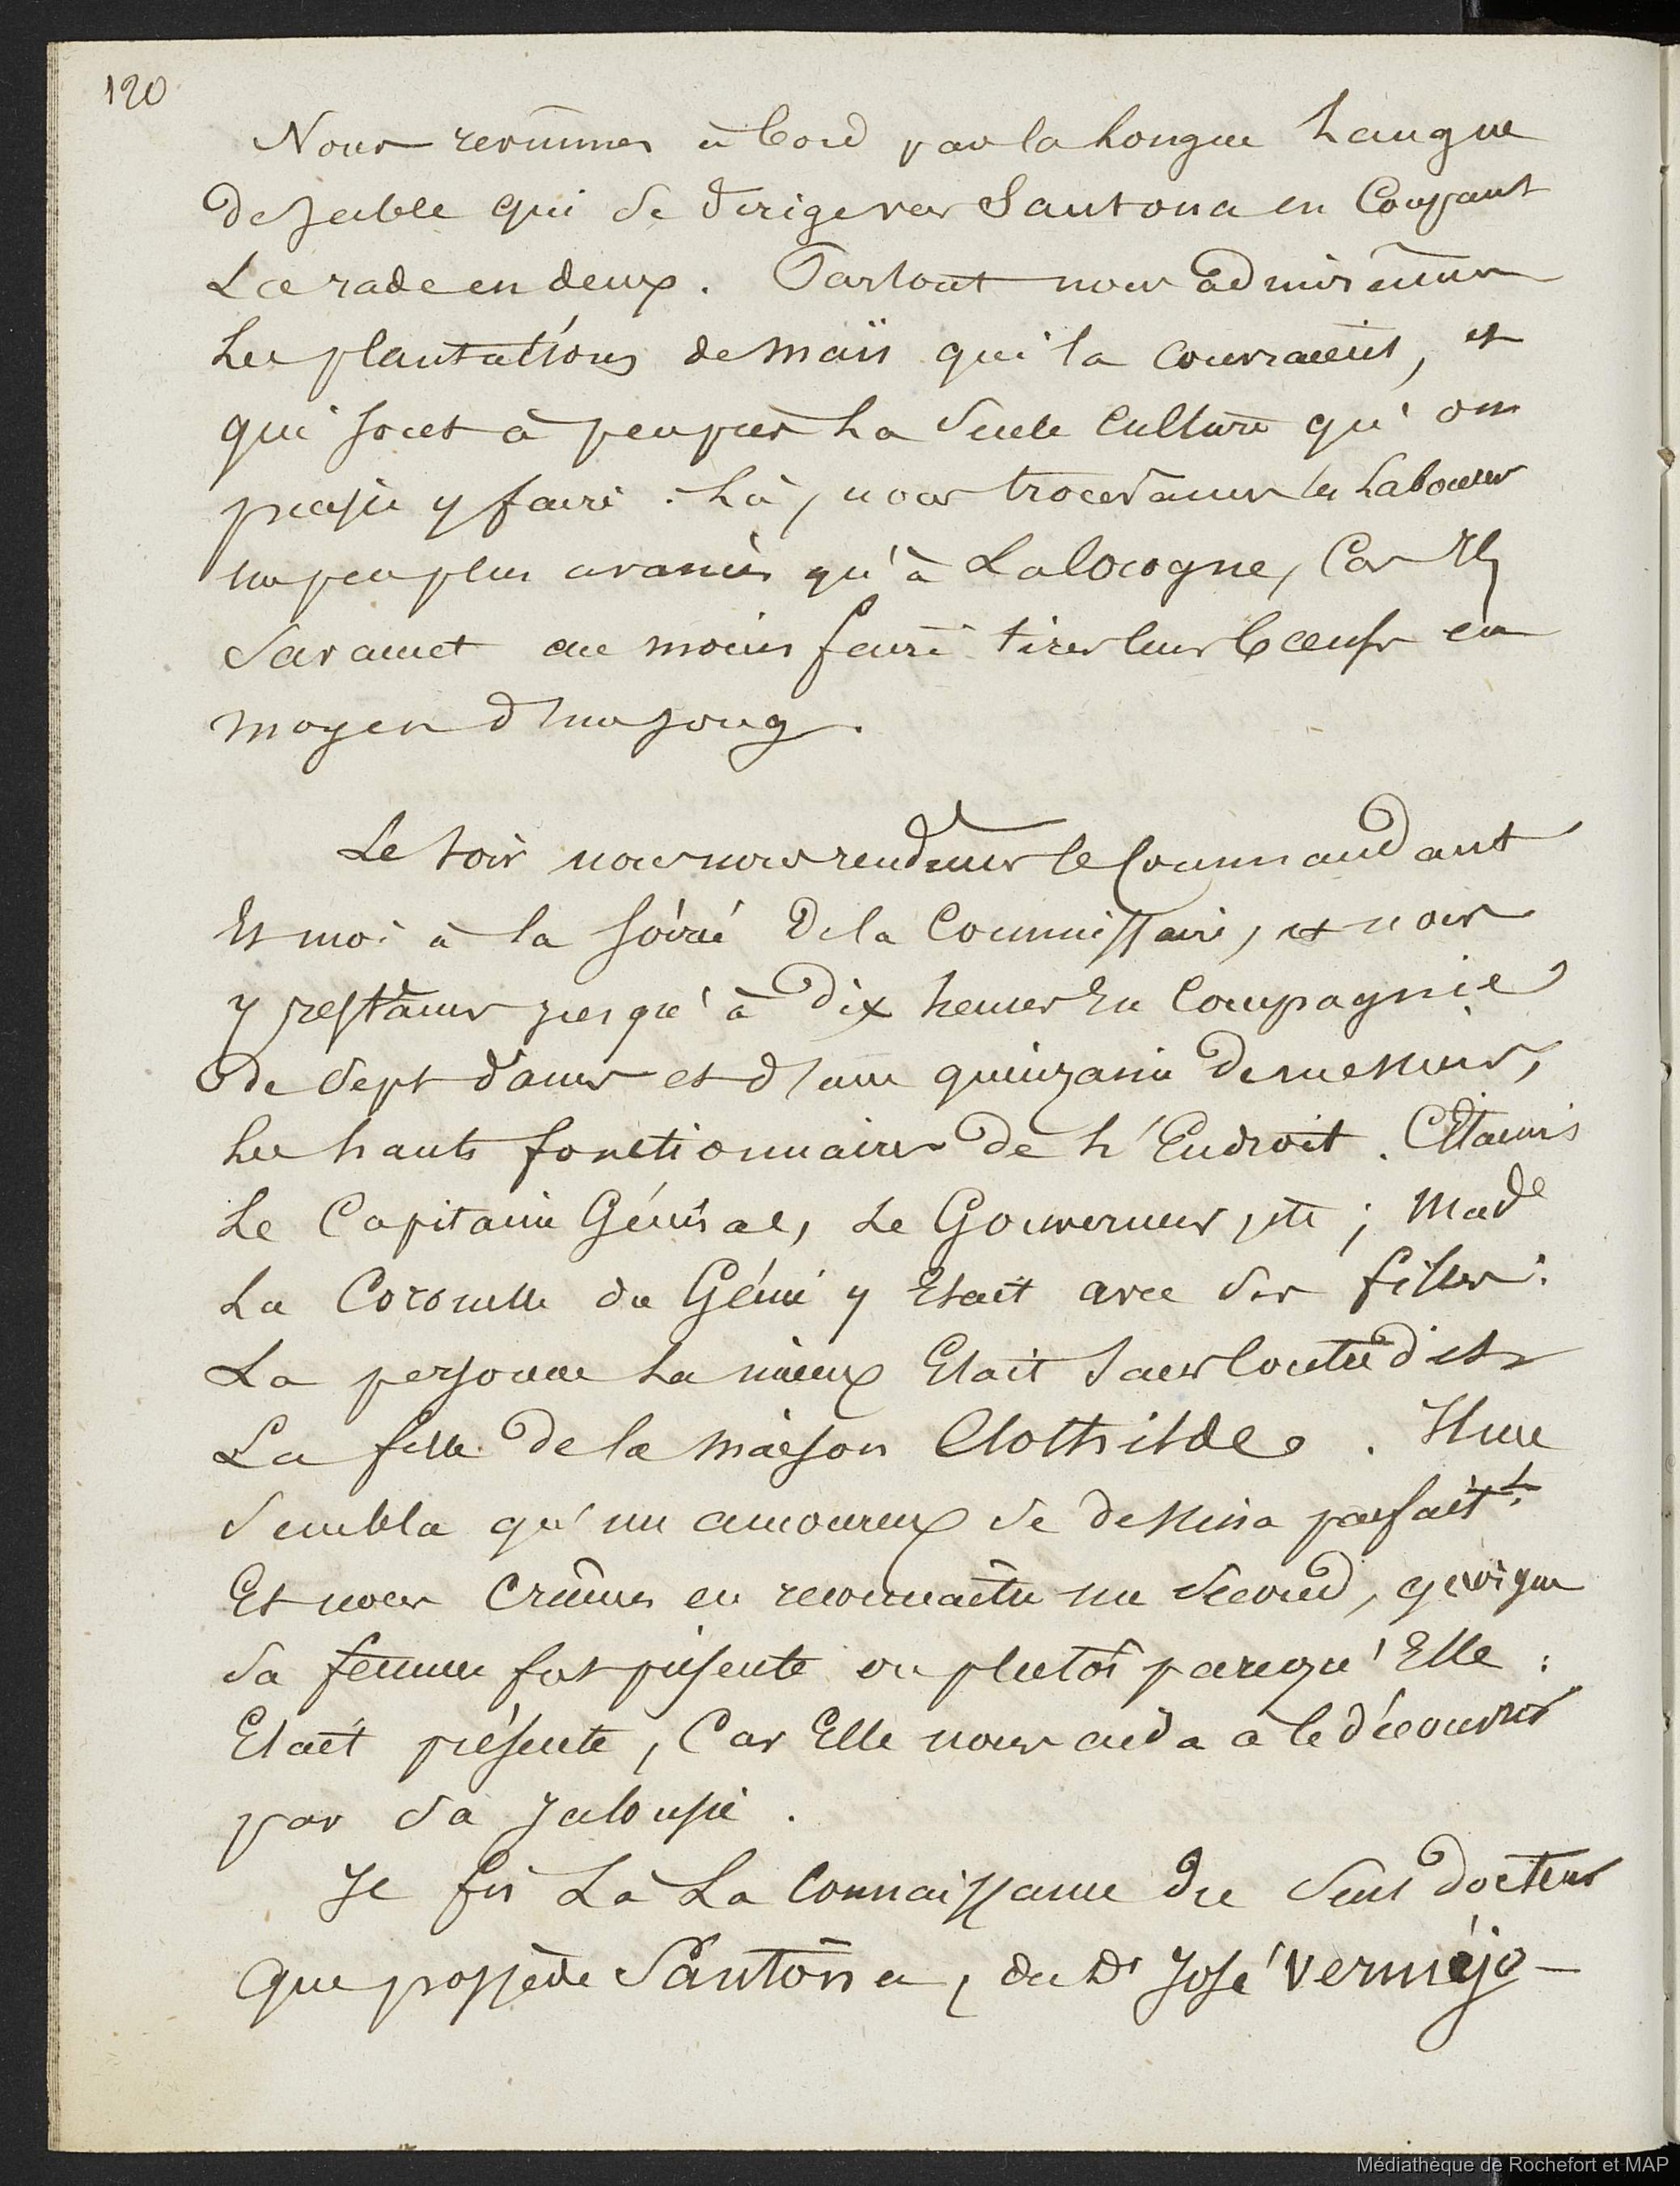 120
Nous revînmes à bord par la longue Langue
de sable qui se dirige vers Santona en Coupant
La rade en deux. Partout nous admirâmes
Les plantations de maïs qui la couvraient, et
qui sont à peu près La Seule Culture qu'on
puisse y faire. Là, nous trouvâmes les Laboureurs
un peu plus avancés qu'à La Corogne, Car Ils
Savaient au moins faire tirer leurs bœufs au
moyen d'un joug.
Le soir nous nous rendîmes le Commandant
Et moi à la soirée de la Commissaire, et nous
y restâmes jusqu'à Dix heures En Compagnie
de Sept dames et d'une quinzaine de messieurs,
Les hauts fonctionnaires de L'Endroit.
Le Capitaine Général, Le Gouverneur, etc; Made
La Coronelle du Génie y Etait avec Ses filles.
La personne La mieux Etait Sans Contredit
La fille de la Maison Clothilde. Il me
Sembla qu'un amoureux Se dessina parfaitt.
Et nous Crûmes en reconnaître un Second, quoique
Sa femme fut présente ou plutôt parcequ'Elle
Etait présente, Car Elle nous aida à le découvrir
par Sa Jalousie.
Je fis Là La Connaissance du Seul docteur
Que possède Santoña, du Dr José Verméjo
Médiathèque de Rochefort et MAP